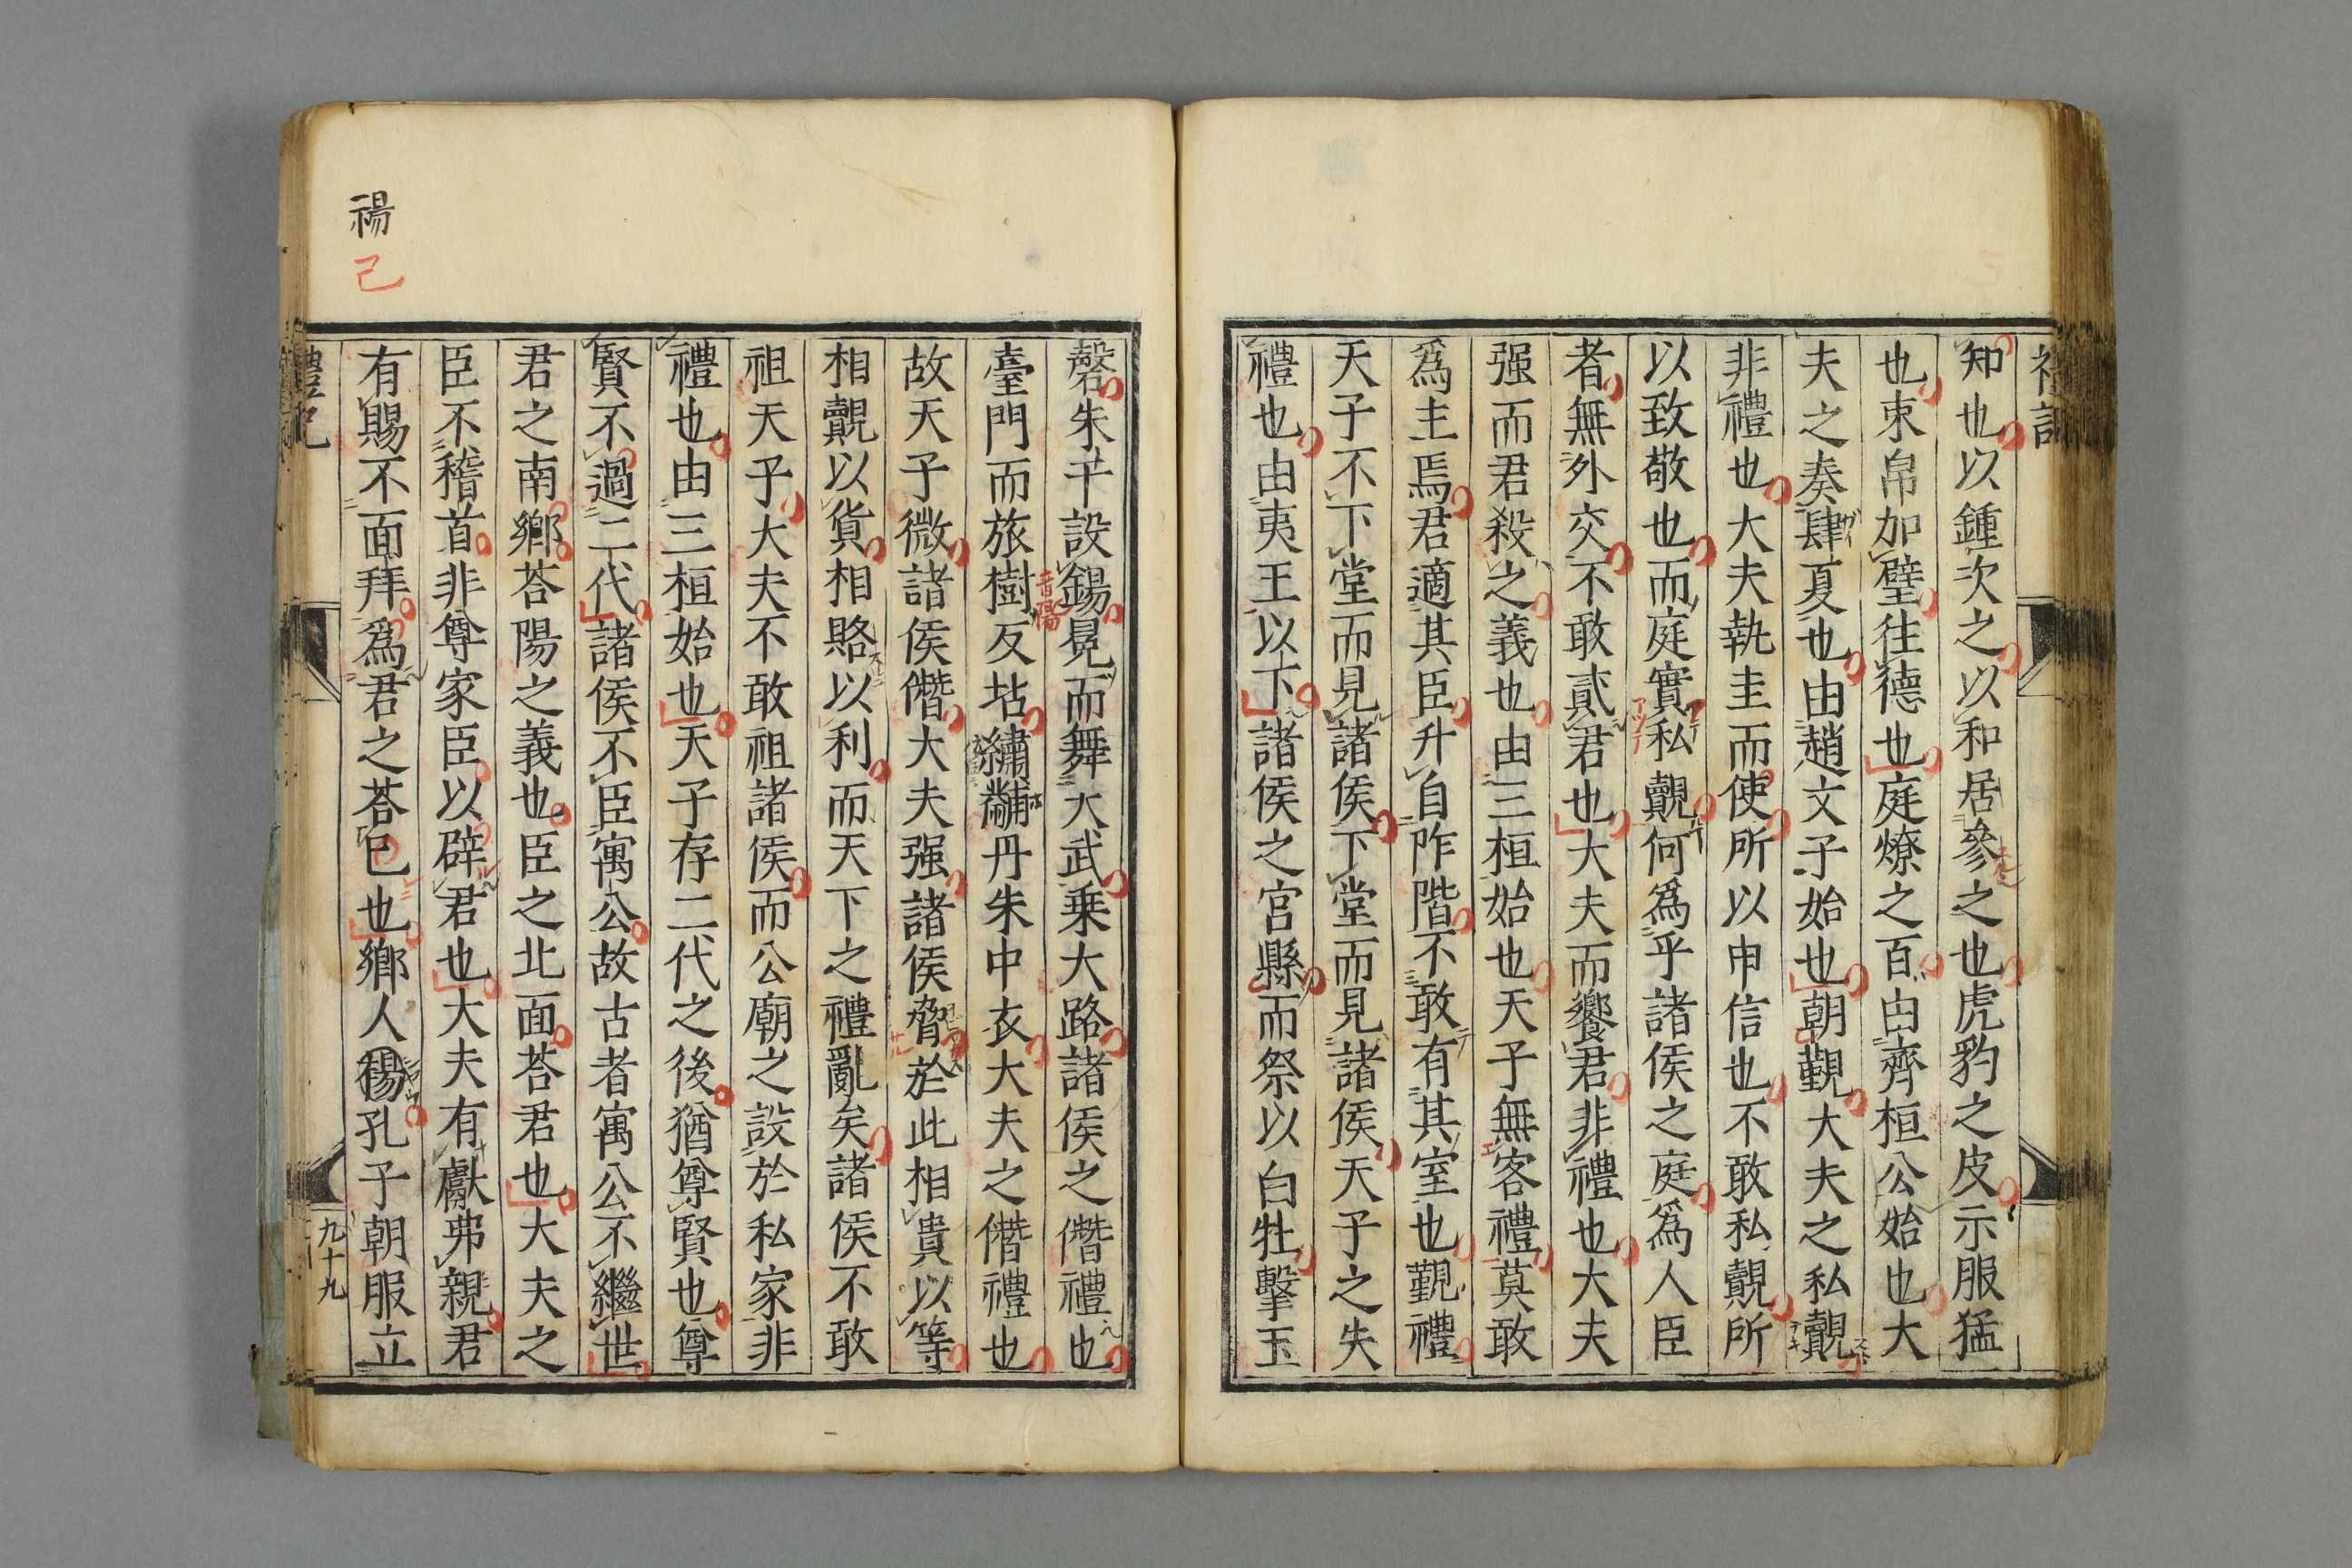 禮記
知也以鍾次之以和居參之也虎豹之皮示服猛
也束帛加璧徃德也庭燎之百由齊桓公始也大
夫之奏肆夏也由趙文子始也朝覲大夫之私覿
非禮也大夫執圭而使所以申信也不敢私覿所
以致敬也而庭實私覿何爲乎諸侯之庭爲人臣
者無外交不敢貳君也大夫而饗君非禮也大夫
强而君殺之義也由三桓始也天子無客禮莫敢
爲主焉君適其臣升自阼階不敢有其室也覲禮
天子不下堂而見諸侯下堂而見諸侯天子之失
禮也由夷王以下諸侯之宮縣而祭以白牡擊玉
磬朱干設鍚冕而舞大武乗大路諸侯之僭禮也
音陽
臺門而旅樹反坫繡黼丹朱中衣大夫之僭禮也
故天子微諸侯僭大夫强諸侯脅於此相貴以等
相覿以貨相賂以利而天下之禮亂矣諸侯不敢
祖天子大夫不敢祖諸侯而公廟之設於私家非
禮也由三桓始也天子存二代之後猶尊賢也尊
賢不過二代諸侯不臣寓公故古者寓公不繼世
君之南鄉荅陽之義也臣之北面荅君也大夫之
臣不稽首非尊家臣以辟君也大夫有獻弗親君
有賜不面拜爲君之荅已也鄉人禓孔子朝服立
禓
己
禮記
九十九